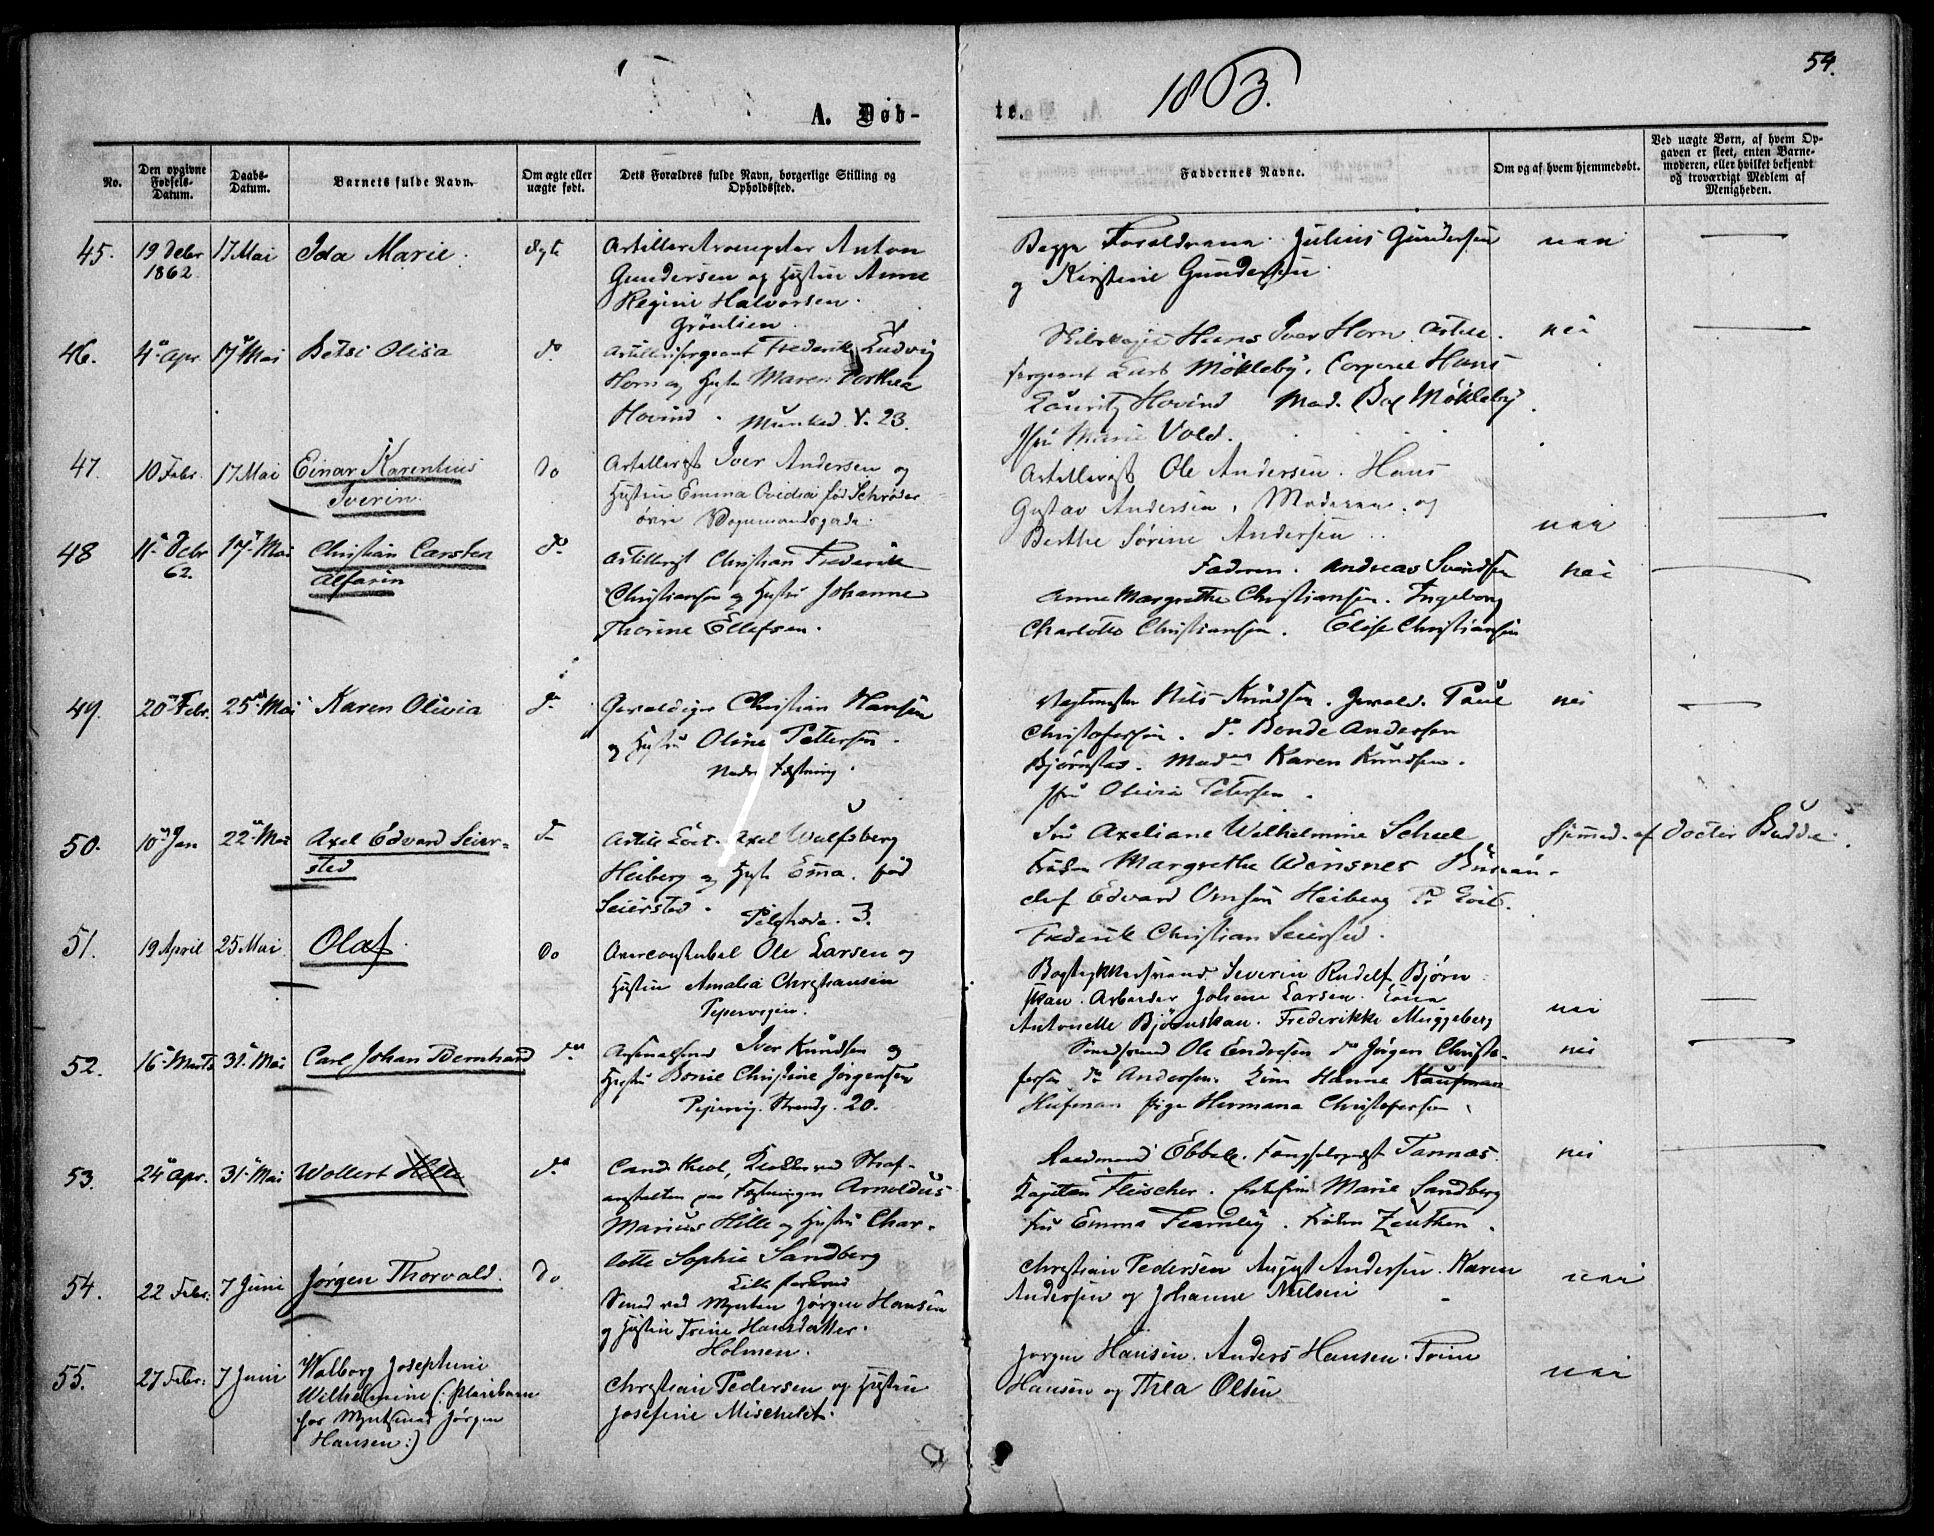 54.
1863.
A. Døb-
te.
No.
Den opgivne Fødsels-Datum.
Daabs-Datum.
Barnets fulde Navn.
Om ægte eller uægte født.
Dets Forældres fulde Navn, borgerlige Stilling og Opholdssted.
Faddernes Navne.
Om og af hvem hjemmedøbt.
Ved uægte Børn, af hvem Opgaven er skeet, enten Barnemoderen, eller hvilket bekjendt og troværdigt Medlem af Menigheden.
45. 19 Debr 17 Mai Ida Marie. Anton
1862
Gundersen og Hustru Anne
Regine Halvorsen.
Grønlien.
Begge Forældrene. Julius Gundersen nei
og Kirstine Gundersen.
46. 4 Apr. 17 Mai Betsi Olisa do Frederik Ludvig
Horn og Hustru Maren Dorthea
Hovind. Munked. V. 23.
Hans Iver Horn.
sergeant Møkleby. Corporal Hans nei
Lauritz Hovind Mad. Møkleby
Jfru Marie Vold.
47. 10 Febr. 17 Mai Einar Karentius Do Artillerist Iver Andersen og
Iverin.
Hustru Emma Ovidia fød Schrøder
øvre Vognmandsgade.
Artillerist Ole Andersen. Hans
Gustav Andersen, Moderen og
Berthe Sørine Andersen nei
48 11 Debr 17 Mai Christian Carsten do Artillerist Christian Frederik
62.
Alfarin
Christiansen og Hustru Johanne
Thorine Ellefsen.
Faderen. Andreas Svendsen nei
Anne Margrethe Christiansen. Ingeborg
Charlotte Christiansen. Elise Christiansen
49. 20 Febr. 25 Mai Karen Olivia do Christian Hansen
og Hustru Oline Pettersen.
Nedre Fæstning.
Vagtmester Nils Knudsen. Paul nei
Christofersen. do Bonde Andersen
Bjørnstad. Mad. Karen Knudsen.
Jfru Olivia Petersen.
50. 10 Jan 22 Mai Axel Edvard Seier- do Axel Wulfsberg
sted
Heiberg og Hustru Ema. fød
Seiersted. 3.
Axeliane Wilhelmine Schul hjemmed. af Doctor Budde.
Frøken Margrethe Wensnes Büreau-
chef Edvard Omsen Heiberg
Frederik Christian Seiersted.
51. 19 April 25 Mai Olaf Do Ole Larsen og
Hustru Amalia Christiansen
Pipervigen.
Severin Rudolf Bjørn
skau. Arbeider Johan Larsen.
Antonette Bjørnskau. Frederikke Muggeberg nei
52. 16 Marts 31 Mai Carl Johan Bernhard do Iver Knudsen og
Hustru Bonie Christine Jørgensen
Pipervig. Strandg. 20.
Ole Endresen do Jørgen Christo- nei
fersen do Andersen. Hanne Kaufman
Hufman pige Hermana Christofersen
53. 24 Apr. 31 Mai Wollert Hille do Cand. theol, ved Straf-
anstalten paa Fæstningen Arnoldus
Marius Hille og Hustru Char-
lotte Sophie Sandberg
Ebbell. Tannæs. nei
Kapitain Fleischer. Marie Sandberg
Fru Emma Fearnley. Frøken Zeuthen.
54. 22 Febr. 7 Juni Jørgen Thorvald. Do
Smed ved Mynten Jørgen Hansen
og Hustru Trine Hansdatter.
Holmen.
Christian Pedersen August Andersen. Karen
Andersen og Johanne Nielsen nei
55. 27 Febr. 7 Juni Walborg Josephine
Wilhelmine (: pleiebarn
for Myntsmed Jørgen
Hansen:)
Christian Pedersen og Hustru
Josefine Michelet.
Jørgen Hansen. Anders Hansen. Trine
Hansen og Thea Olsen nei